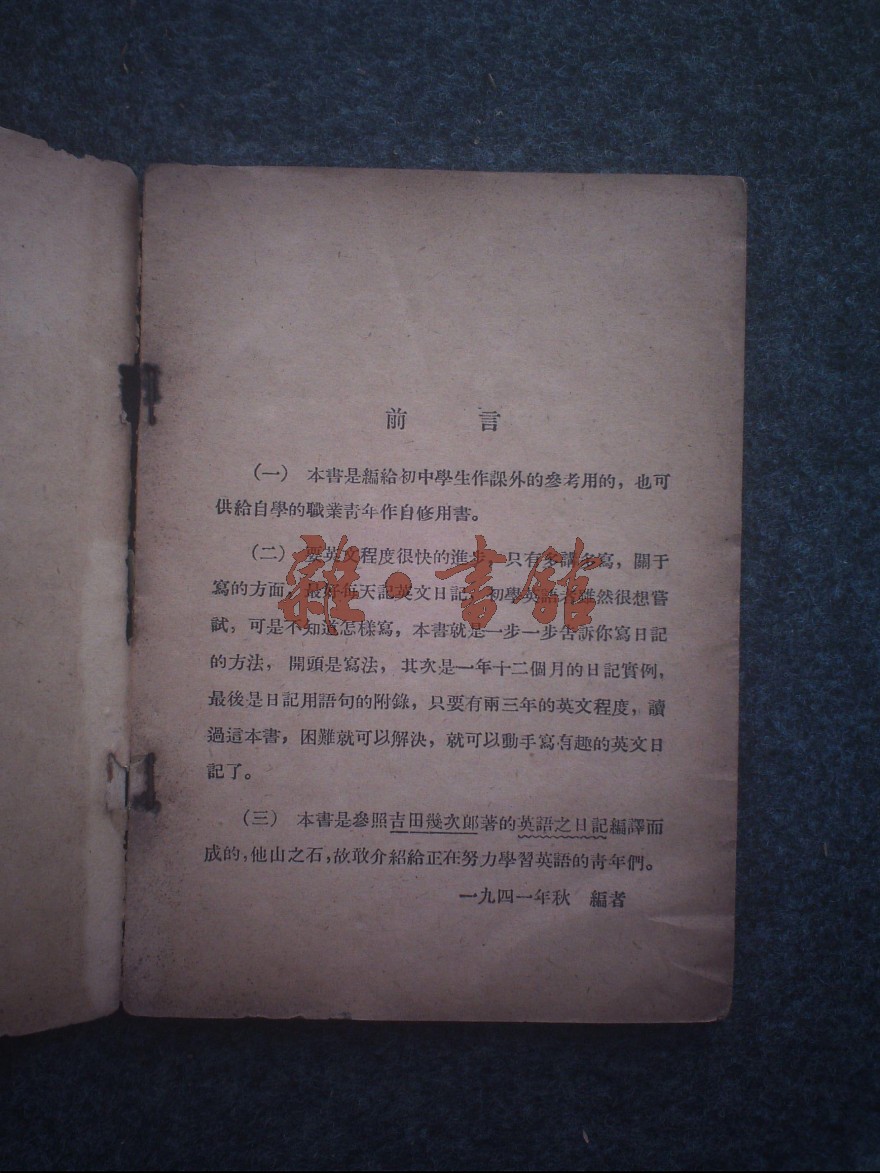 前言
(一) 本書是編給初中學生作課外的參考用的，也可
供給自學的職業靑年作自修用書。
(二) 要英文程度很快的進步，只有多講多寫，關于
寫的方面，最好每天記英文日記，初學英語者雖然很想嘗
試，可是不知道怎樣寫，本書就是一步一步吿訴你寫日記
的方法，開頭是寫法，其次是一年十二個月的日記實例，
最後是日記用語句的附錄，只要有兩三年的英文程度，讀
過這本書，困難就可以解決，就可以動手寫有趣的英文日
記了。
(三) 本書是參照吉田幾次郎著的英語之日記編譯而
成的，他山之石，故敢介紹給正在努力學習英語的靑年們。
一九四一年秋 編者
雜·書館